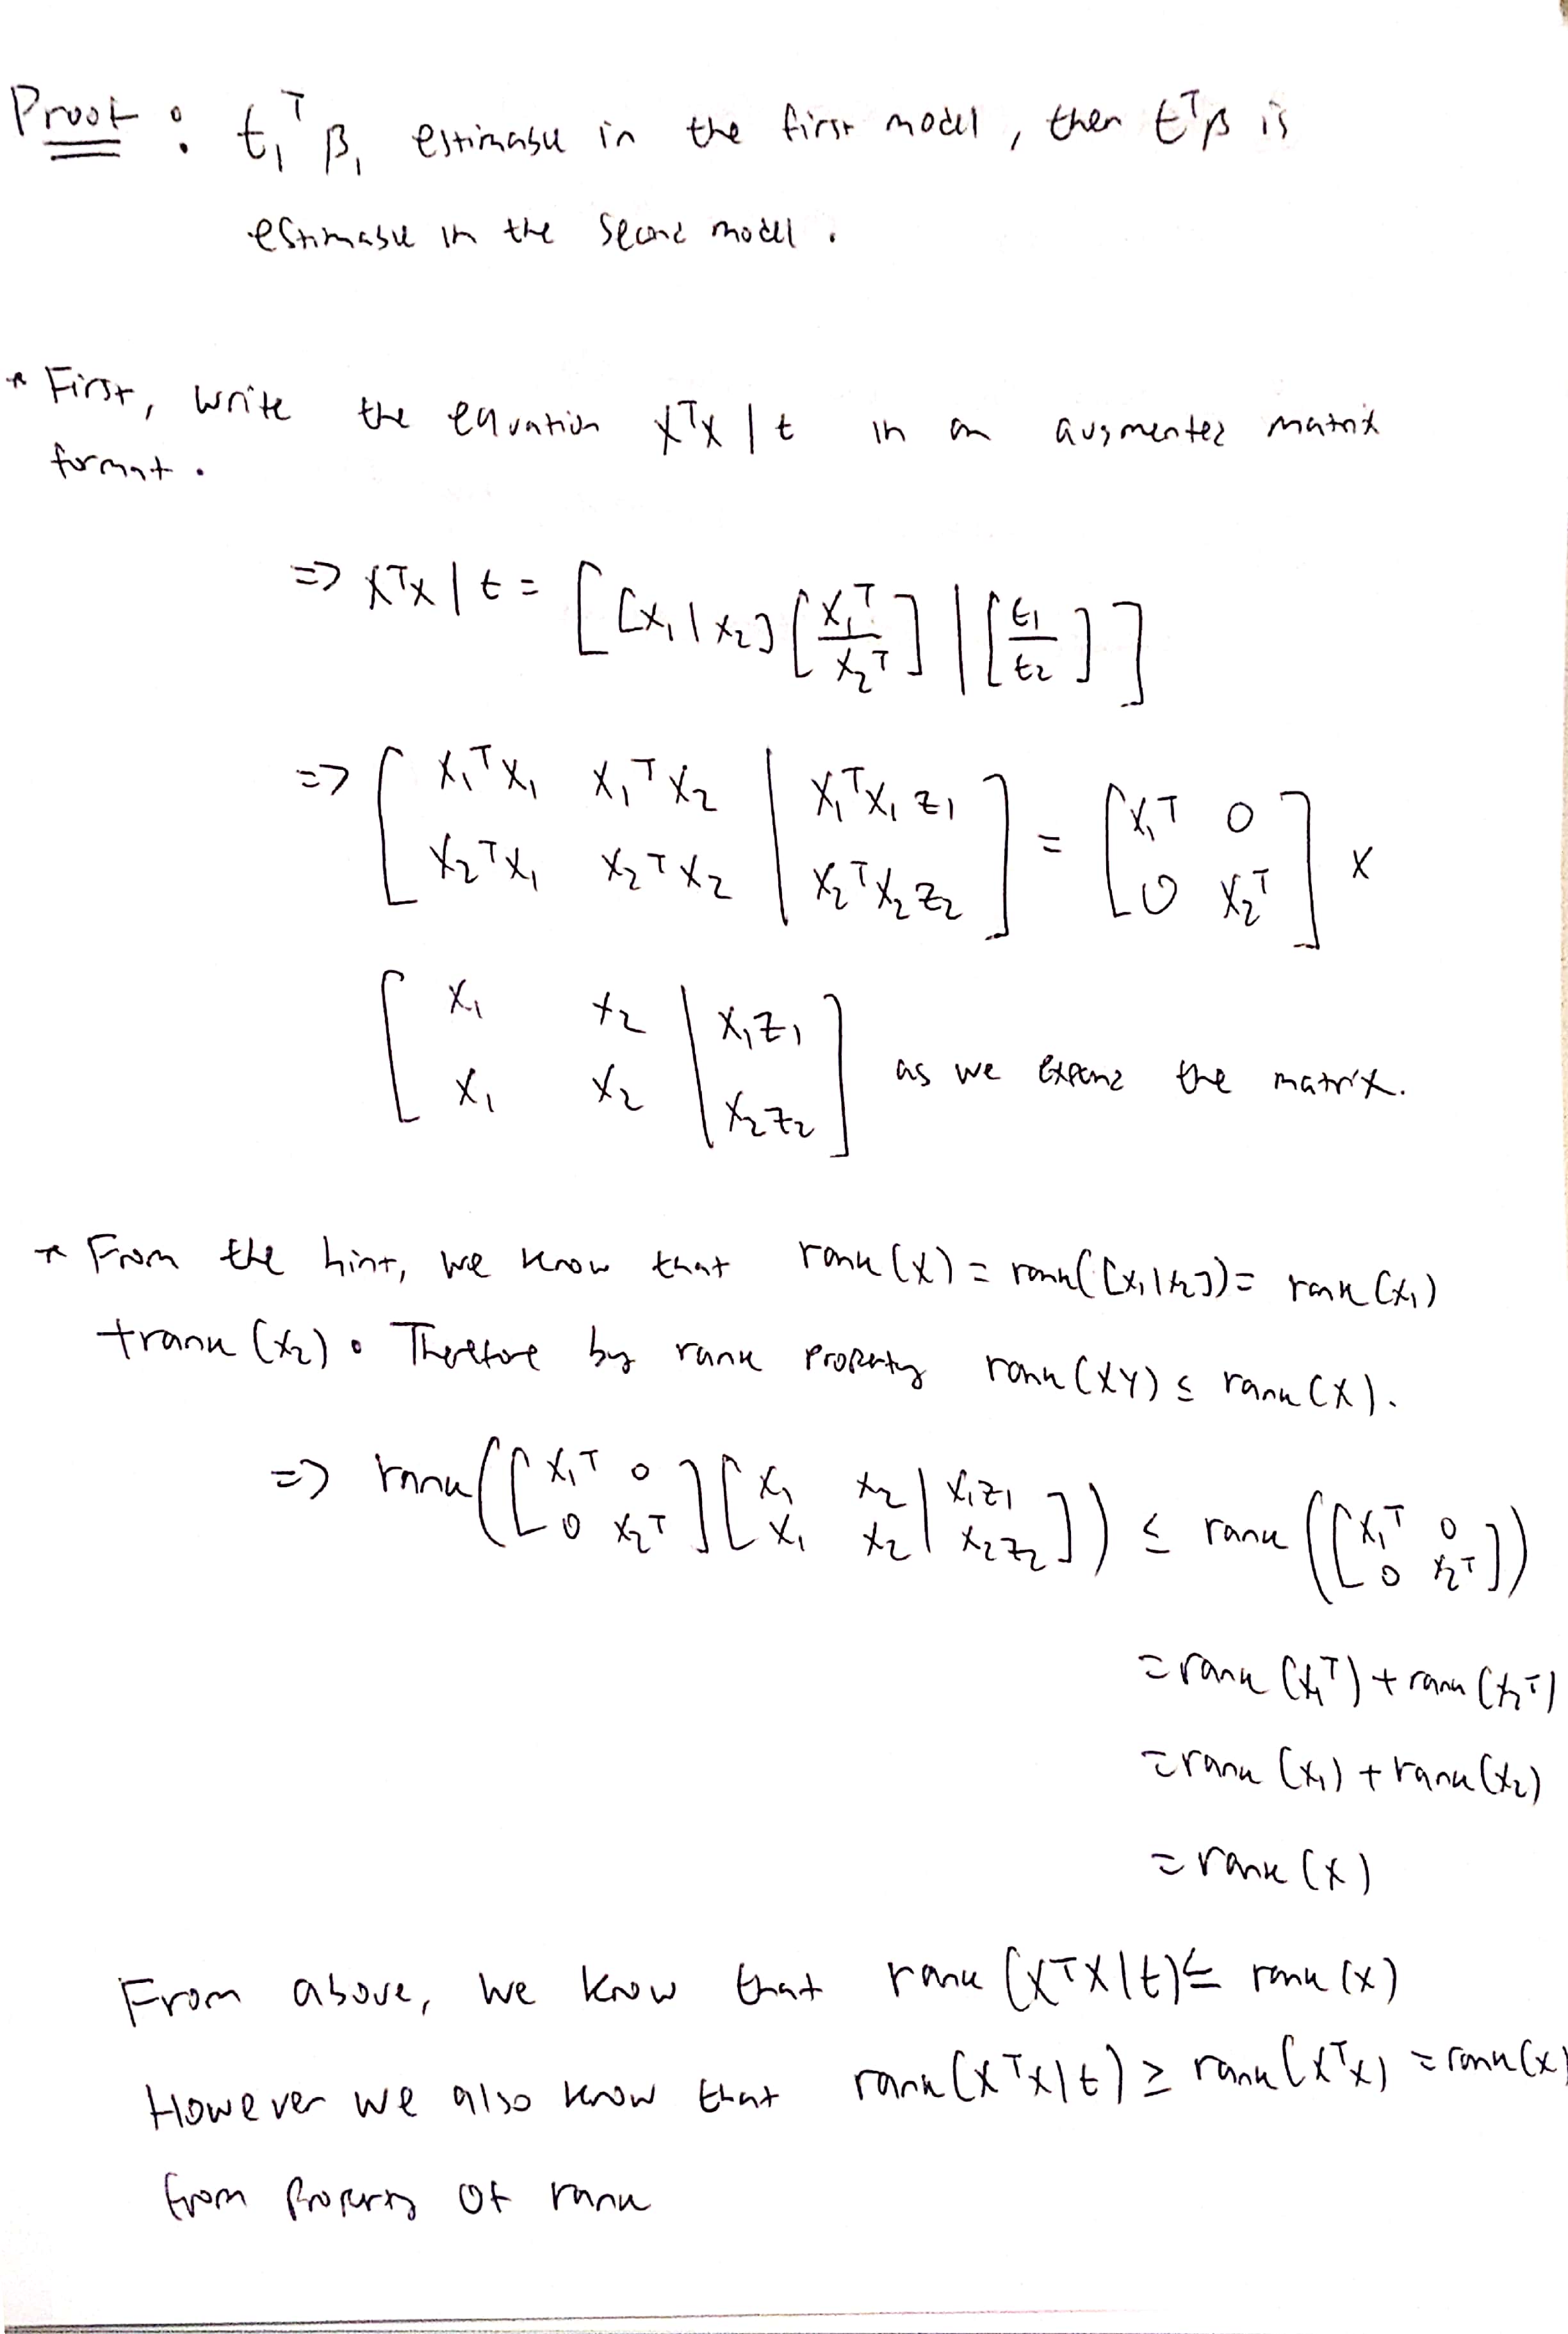 Proof : t₁ᵀ β₁ estimable in the first model , then tᵀβ is
estimable in the second model .
* First, write the equation XᵀX | t in an augmented matrix
format .
=> XᵀX | t = [ [X₁ | X₂] [ X₁ᵀ / X₂ᵀ ] | [ t₁ / t₂ ] ]
=> [ X₁ᵀX₁ X₁ᵀX₂ | X₁ᵀX₁z₁ ; X₂ᵀX₁ X₂ᵀX₂ | X₂ᵀX₂z₂ ] = [ X₁ᵀ 0 ; 0 X₂ᵀ ] x
[ X₁ X₂ | X₁z₁ ; X₁ X₂ | X₂z₂ ] as we expand the matrix.
* From the hint, we know that rank (X) = rank([X₁|X₂]) = rank (X₁)
+ rank (X₂) . Therefore by rank property rank (XY) ≤ rank (X).
=> rank ( [ X₁ᵀ 0 ; 0 X₂ᵀ ] [ X₁ X₂ | X₁z₁ ; X₁ X₂ | X₂z₂ ] ) ≤ rank ( [ X₁ᵀ 0 ; 0 X₂ᵀ ] )
= rank (X₁ᵀ) + rank (X₂ᵀ)
= rank (X₁) + rank (X₂)
= rank (X)
From above, we know that rank (XᵀX|t) ≤ rank (X)
However we also know that rank (XᵀX|t) ≥ rank (XᵀX) = rank (X)
from property of rank